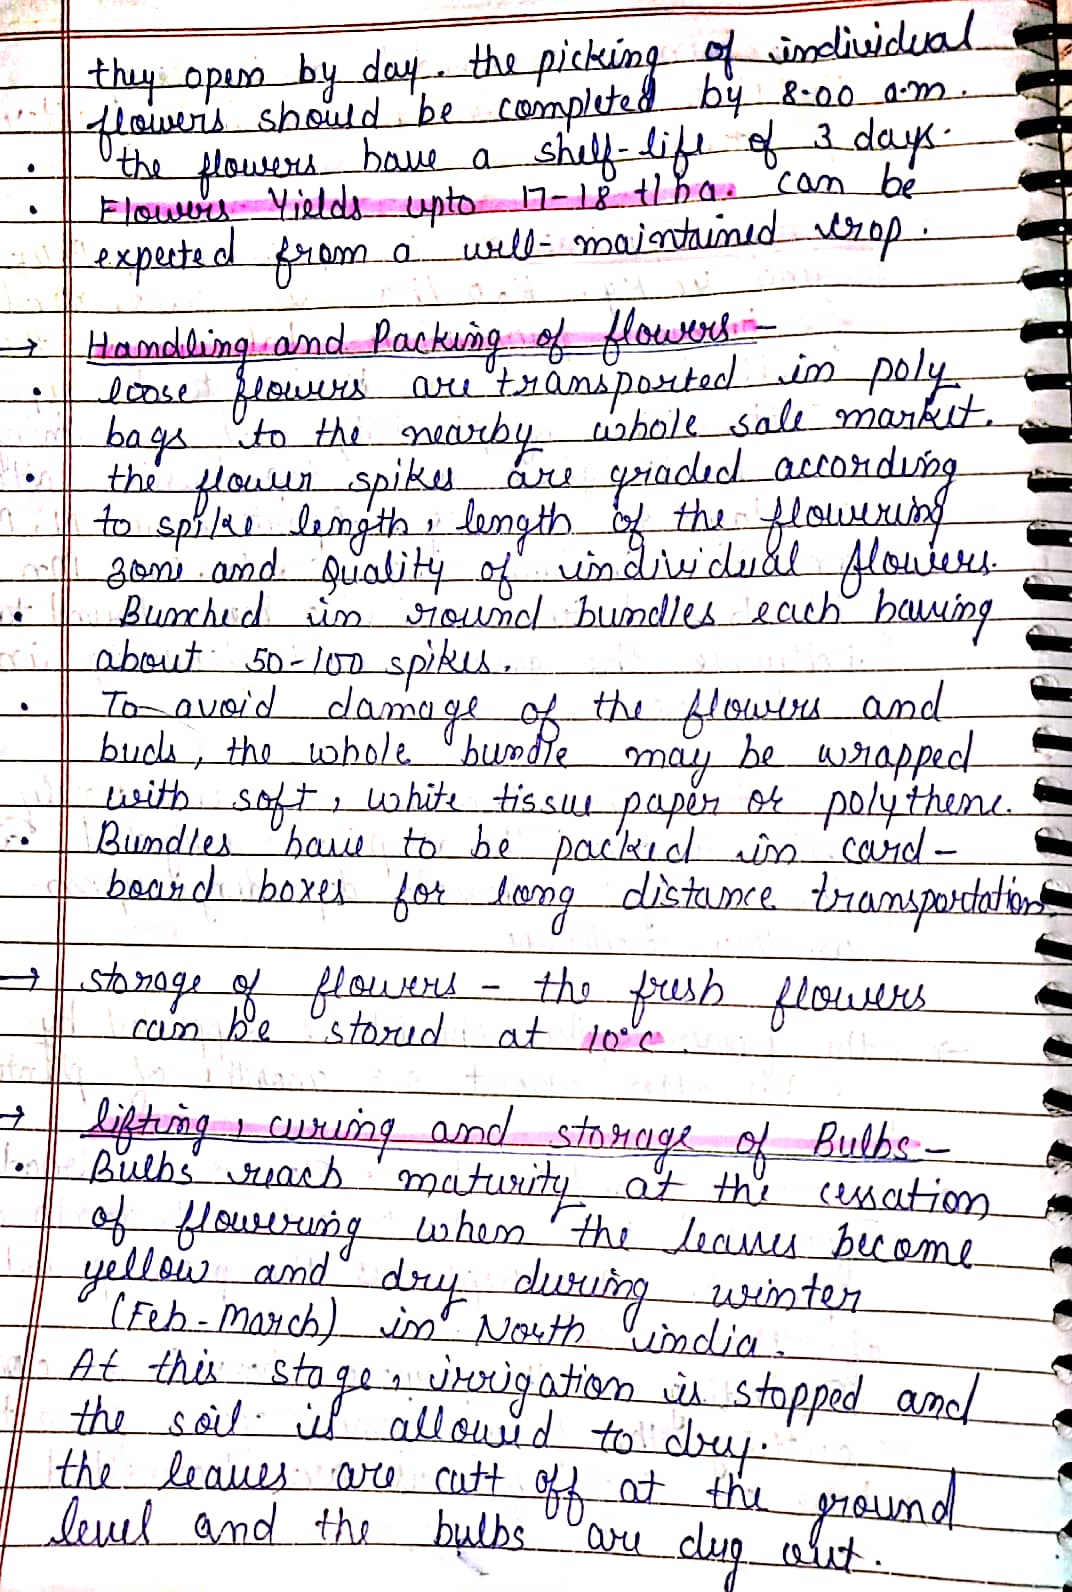 they open by day. the picking of individual
flowers should be completed by 8.00 a.m.
• the flowers have a shelf-life of 3 days.
• Flowers Yields upto 17-18 t/ha. can be
expected from a well-maintained crop.
→ Handling and Packing of flowers -
• loose flowers are transported in poly
bags to the nearby whole sale market.
• the flower spikes are graded according
to spike length, length of the flowering
zone and Quality of individual flowers.
• Bunched in round bundles each having
about 50-100 spikes.
• To avoid damage of the flowers and
buds, the whole bundle may be wrapped
with soft, white tissue paper or polythene.
• Bundles have to be packed in card-
board boxes for long distance transportation
→ storage of flowers - the fresh flowers
can be stored at 10°C.
→ lifting, curing and storage of Bulbs -
• Bulbs reach maturity at the cessation
of flowering when the leaves become
yellow and dry during winter
(Feb-March) in North india.
At this stage, irrigation is stopped and
the soil is allowed to dry.
the leaves are cutt off at the ground
level and the bulbs are dug out.